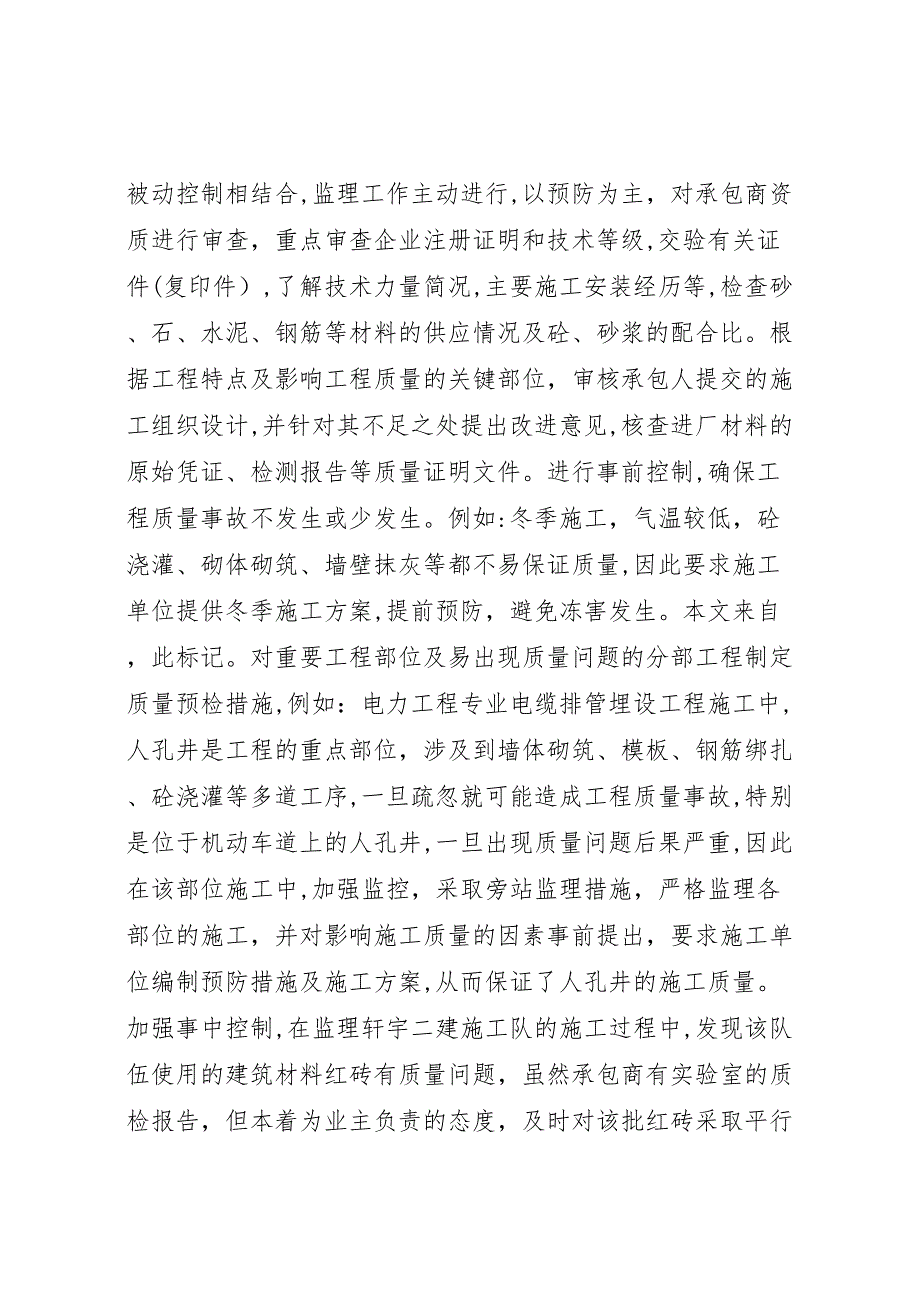 被动控制相结合,监理工作主动进行,以预防为主，对承包商资
质进行审查，重点审查企业注册证明和技术等级,交验有关证
件(复印件）,了解技术力量简况,主要施工安装经历等,检查砂
、石、水泥、钢筋等材料的供应情况及砼、砂浆的配合比。根
据工程特点及影响工程质量的关键部位，审核承包人提交的施
工组织设计,并针对其不足之处提出改进意见,核查进厂材料的
原始凭证、检测报告等质量证明文件。进行事前控制,确保工
程质量事故不发生或少发生。例如:冬季施工，气温较低，砼
浇灌、砌体砌筑、墙壁抹灰等都不易保证质量,因此要求施工
单位提供冬季施工方案,提前预防，避免冻害发生。本文来自
，此标记。对重要工程部位及易出现质量问题的分部工程制定
质量预检措施,例如：电力工程专业电缆排管埋设工程施工中,
人孔井是工程的重点部位，涉及到墙体砌筑、模板、钢筋绑扎
、砼浇灌等多道工序,一旦疏忽就可能造成工程质量事故,特别
是位于机动车道上的人孔井,一旦出现质量问题后果严重,因此
在该部位施工中,加强监控，采取旁站监理措施，严格监理各
部位的施工，并对影响施工质量的因素事前提出，要求施工单
位编制预防措施及施工方案,从而保证了人孔井的施工质量。
加强事中控制,在监理轩宇二建施工队的施工过程中,发现该队
伍使用的建筑材料红砖有质量问题，虽然承包商有实验室的质
检报告，但本着为业主负责的态度，及时对该批红砖采取平行